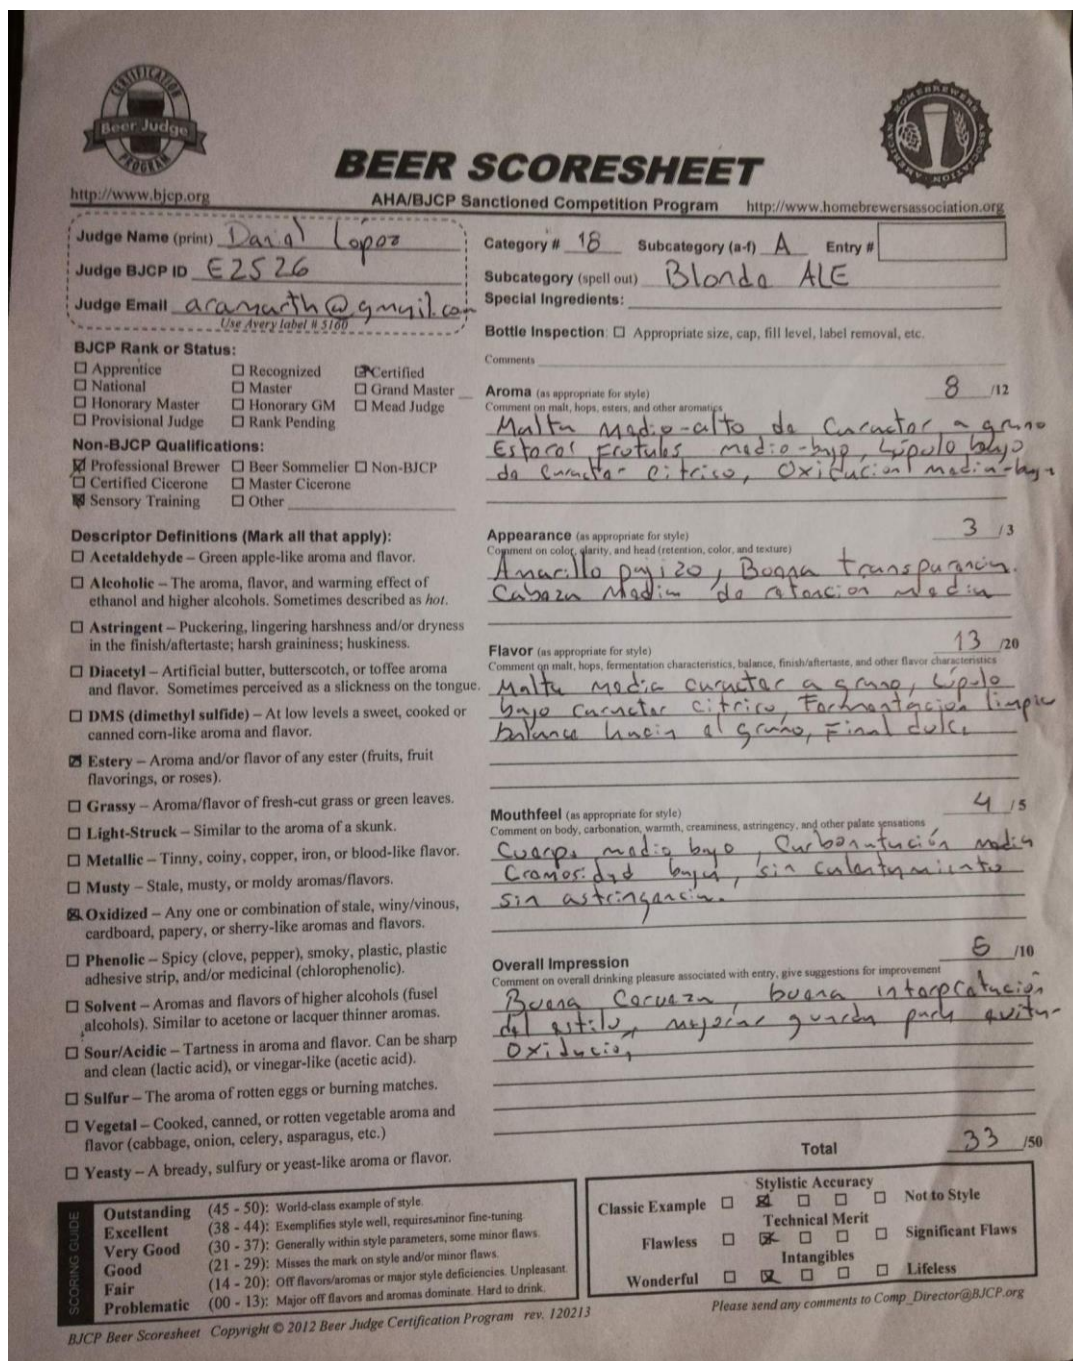 CERTIFICATION
Beer Judge
PROGRAM
AMERICAN HOMEBREWERS ASSOCIATION
BEER SCORESHEET
http://www.bjcp.org
AHA/BJCP Sanctioned Competition Program
http://www.homebrewersassociation.org
Judge Name (print)
Judge BJCP ID E2526
Judge Email aramarth@gmail.com
Use Avery label # 5160
BJCP Rank or Status:
☐ Apprentice ☐ Recognized ☑ Certified
☐ National ☐ Master ☐ Grand Master __
☐ Honorary Master ☐ Honorary GM ☐ Mead Judge
☐ Provisional Judge ☐ Rank Pending
Non-BJCP Qualifications:
☑ Professional Brewer ☐ Beer Sommelier ☐ Non-BJCP
☐ Certified Cicerone ☐ Master Cicerone
☑ Sensory Training ☐ Other
Descriptor Definitions (Mark all that apply):
☐ Acetaldehyde – Green apple-like aroma and flavor.
☐ Alcoholic – The aroma, flavor, and warming effect of
ethanol and higher alcohols. Sometimes described as hot.
☐ Astringent – Puckering, lingering harshness and/or dryness
in the finish/aftertaste; harsh graininess; huskiness.
☐ Diacetyl – Artificial butter, butterscotch, or toffee aroma
and flavor. Sometimes perceived as a slickness on the tongue.
☐ DMS (dimethyl sulfide) – At low levels a sweet, cooked or
canned corn-like aroma and flavor.
☑ Estery – Aroma and/or flavor of any ester (fruits, fruit
flavorings, or roses).
☐ Grassy – Aroma/flavor of fresh-cut grass or green leaves.
☐ Light-Struck – Similar to the aroma of a skunk.
☐ Metallic – Tinny, coiny, copper, iron, or blood-like flavor.
☐ Musty – Stale, musty, or moldy aromas/flavors.
☒ Oxidized – Any one or combination of stale, winy/vinous,
cardboard, papery, or sherry-like aromas and flavors.
☐ Phenolic – Spicy (clove, pepper), smoky, plastic, plastic
adhesive strip, and/or medicinal (chlorophenolic).
☐ Solvent – Aromas and flavors of higher alcohols (fusel
alcohols). Similar to acetone or lacquer thinner aromas.
☐ Sour/Acidic – Tartness in aroma and flavor. Can be sharp
and clean (lactic acid), or vinegar-like (acetic acid).
☐ Sulfur – The aroma of rotten eggs or burning matches.
☐ Vegetal – Cooked, canned, or rotten vegetable aroma and
flavor (cabbage, onion, celery, asparagus, etc.)
☐ Yeasty – A bready, sulfury or yeast-like aroma or flavor.
Category # 18 Subcategory (a-f) A Entry #
Subcategory (spell out) Blonde ALE
Special Ingredients:
Bottle Inspection: ☐ Appropriate size, cap, fill level, label removal, etc.
Comments
Aroma (as appropriate for style) 8 /12
Comment on malt, hops, esters, and other aromatics
Malta medio-alto de caracter a grano
Esteres Frutales medio-bajo, Lúpulo bajo
de caracter citrico, Oxidacion media-baja
Appearance (as appropriate for style) 3 /3
Comment on color, clarity, and head (retention, color, and texture)
Amarillo pajizo, Buena transparencia.
Cabeza Media de retencion media
Flavor (as appropriate for style) 13 /20
Comment on malt, hops, fermentation characteristics, balance, finish/aftertaste, and other flavor characteristics
Malta media caracter a grano, Lúpulo
bajo caracter citrico, Fermentacion limpia
balance hacia el grano, Final dulce
Mouthfeel (as appropriate for style) 4 /5
Comment on body, carbonation, warmth, creaminess, astringency, and other palate sensations
Cuerpo medio bajo, Carbonatación media
Cremosidad baja, sin calentamiento
sin astringencia.
Overall Impression /10
Comment on overall drinking pleasure associated with entry, give suggestions for improvement
Buena Cerveza, buena interpretación
del estilo, mejorar guarda para evitar
Oxidación
Total 33 /50
SCORING GUIDE
Outstanding (45 - 50): World-class example of style.
Excellent (38 - 44): Exemplifies style well, requires minor fine-tuning.
Very Good (30 - 37): Generally within style parameters, some minor flaws.
Good (21 - 29): Misses the mark on style and/or minor flaws.
Fair (14 - 20): Off flavors/aromas or major style deficiencies. Unpleasant.
Problematic (00 - 13): Major off flavors and aromas dominate. Hard to drink.
Stylistic Accuracy
Classic Example ☐ ☒ ☐ ☐ ☐ Not to Style
Technical Merit
Flawless ☐ ☒ ☐ ☐ ☐ Significant Flaws
Intangibles
Wonderful ☐ ☒ ☐ ☐ ☐ Lifeless
BJCP Beer Scoresheet Copyright © 2012 Beer Judge Certification Program rev. 120213
Please send any comments to Comp_Director@BJCP.org